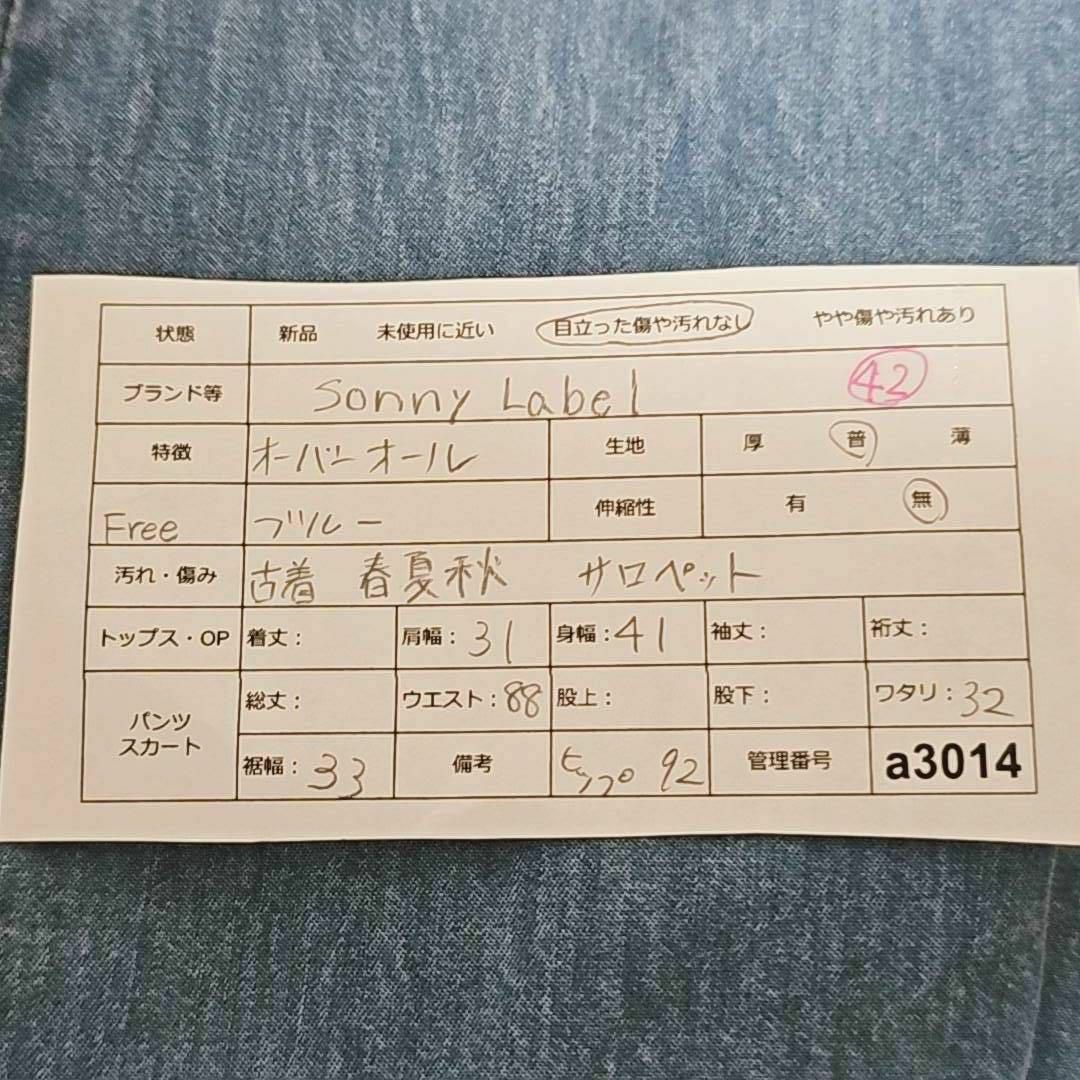 状態 新品 未使用に近い 目立った傷や汚れなし やや傷や汚れあり
ブランド等 Sonny Label 42
特徴 オーバーオール 生地 厚 普 薄
Free ブルー 伸縮性 有 無
汚れ・傷み 古着 春夏秋 サロペット
トップス・OP 着丈: 肩幅: 31 身幅: 41 袖丈: 裄丈:
パンツ スカート 総丈: ウエスト: 88 股上: 股下: ワタリ: 32
裾幅: 33 備考 ヒップ 92 管理番号 a3014